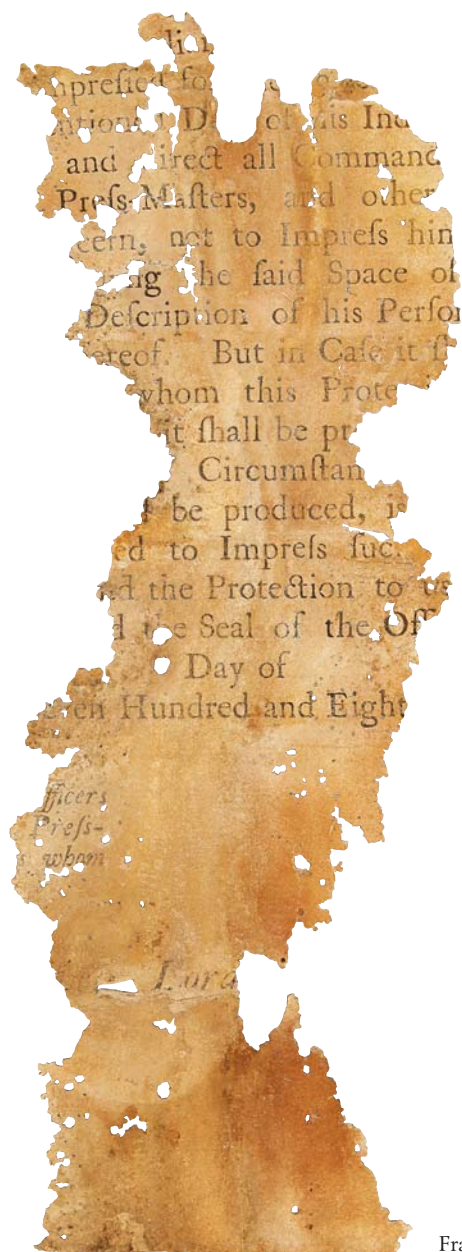 and direct all Command
Preſs-Maſters, and other
cern, not to Impreſs him
ing the ſaid Space of
Deſcription of his Perſon
ereof. But in Caſe it
whom this Prote
it ſhall be pr
Circumſtan
be produced, is
ed to Impreſs ſuc
nd the Protection to us
d the Seal of the Off
Day of
en Hundred and Eight
fficers
Preſs-
whom
Lord
Fra